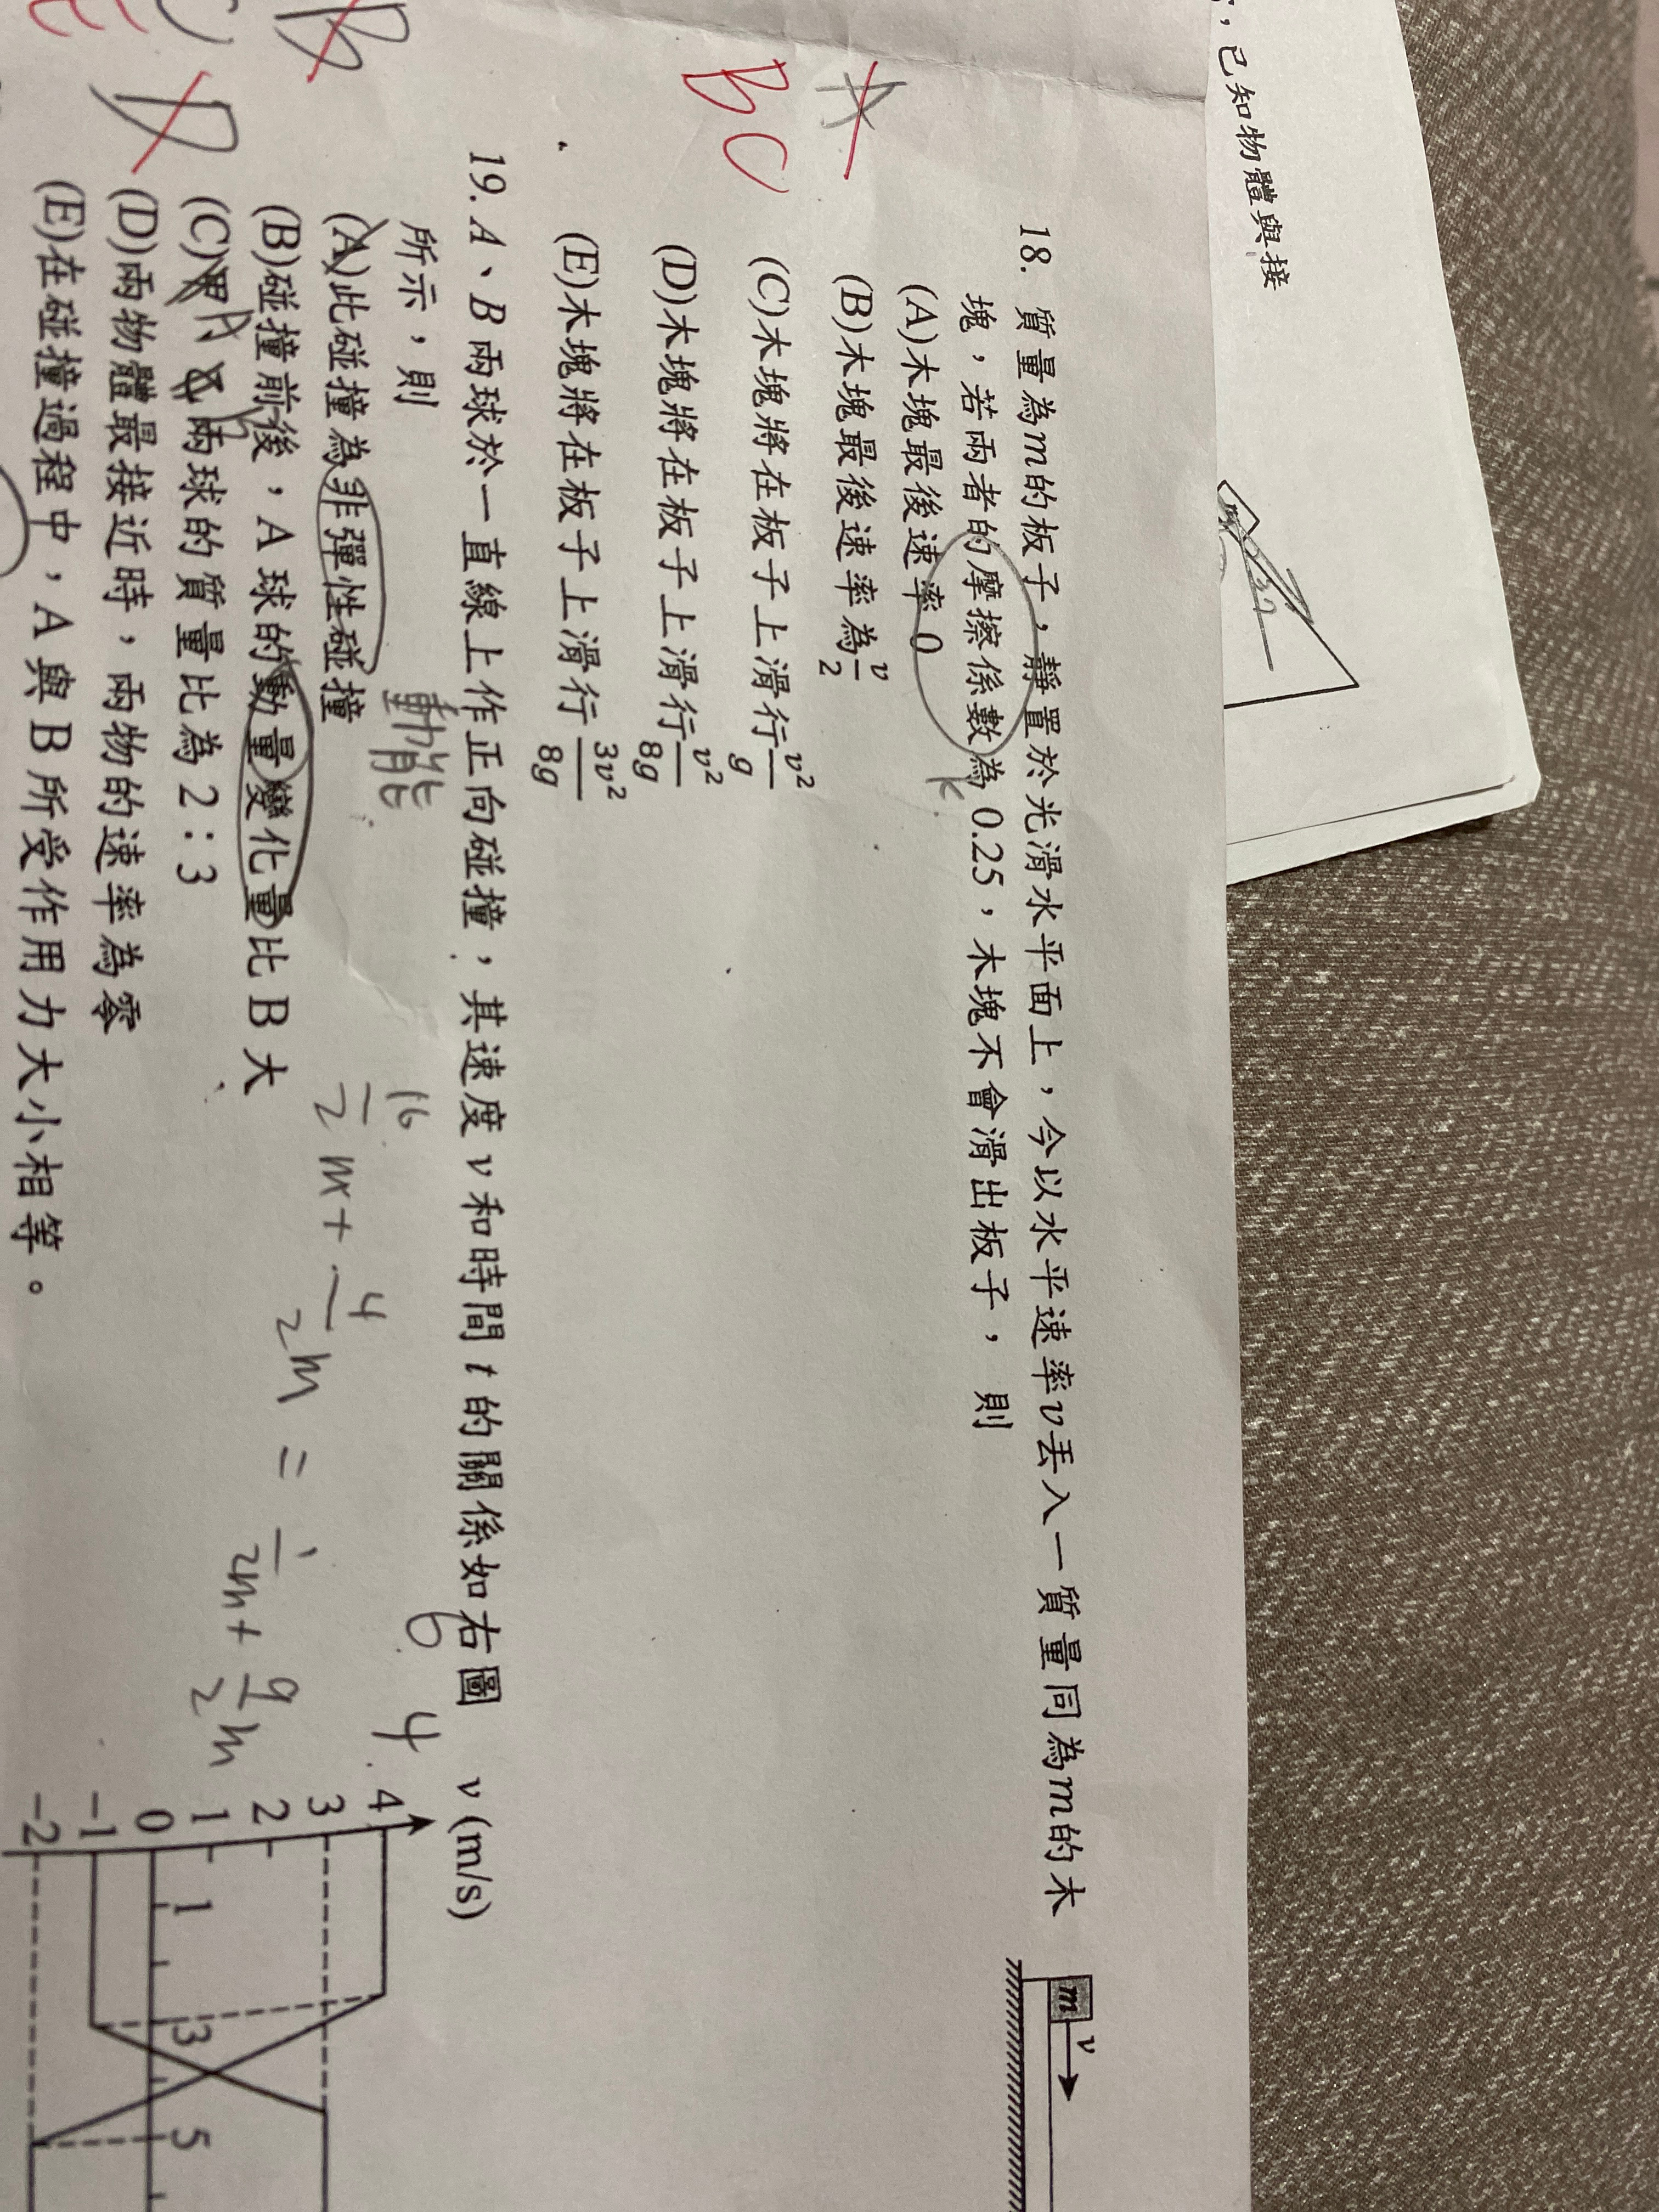 ，已知物體與接
18. 質量為m的板子，靜置於光滑水平面上，今以水平速率v丟入一質量同為m的木
塊，若兩者的摩擦係數為0.25，木塊不會滑出板子， 則
k
(A)木塊最後速率0
(B)木塊最後速率為v/2
(C)木塊將在板子上滑行v²/g
(D)木塊將在板子上滑行v²/8g
(E)木塊將在板子上滑行3v²/8g
A
BC
m v
19. A、B兩球於一直線上作正向碰撞，其速度v和時間t的關係如右圖
所示，則
動能
(A)此碰撞為非彈性碰撞
(B)碰撞前後，A球的動量變化量比B大
(C)A B兩球的質量比為2：3
(D)兩物體最接近時，兩物的速率為零
(E)在碰撞過程中，A與B所受作用力大小相等。
16/2 m + 4/2 m = 1/2 m + 9/2 m
6 4
B
D
C
E
v (m/s)
4
3
2
1
0
-1
-2
1 3 5